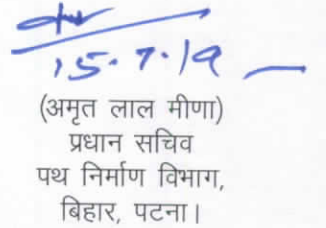 15.7.19
(अमृत लाल मीणा)
प्रधान सचिव
पथ निर्माण विभाग,
बिहार, पटना।